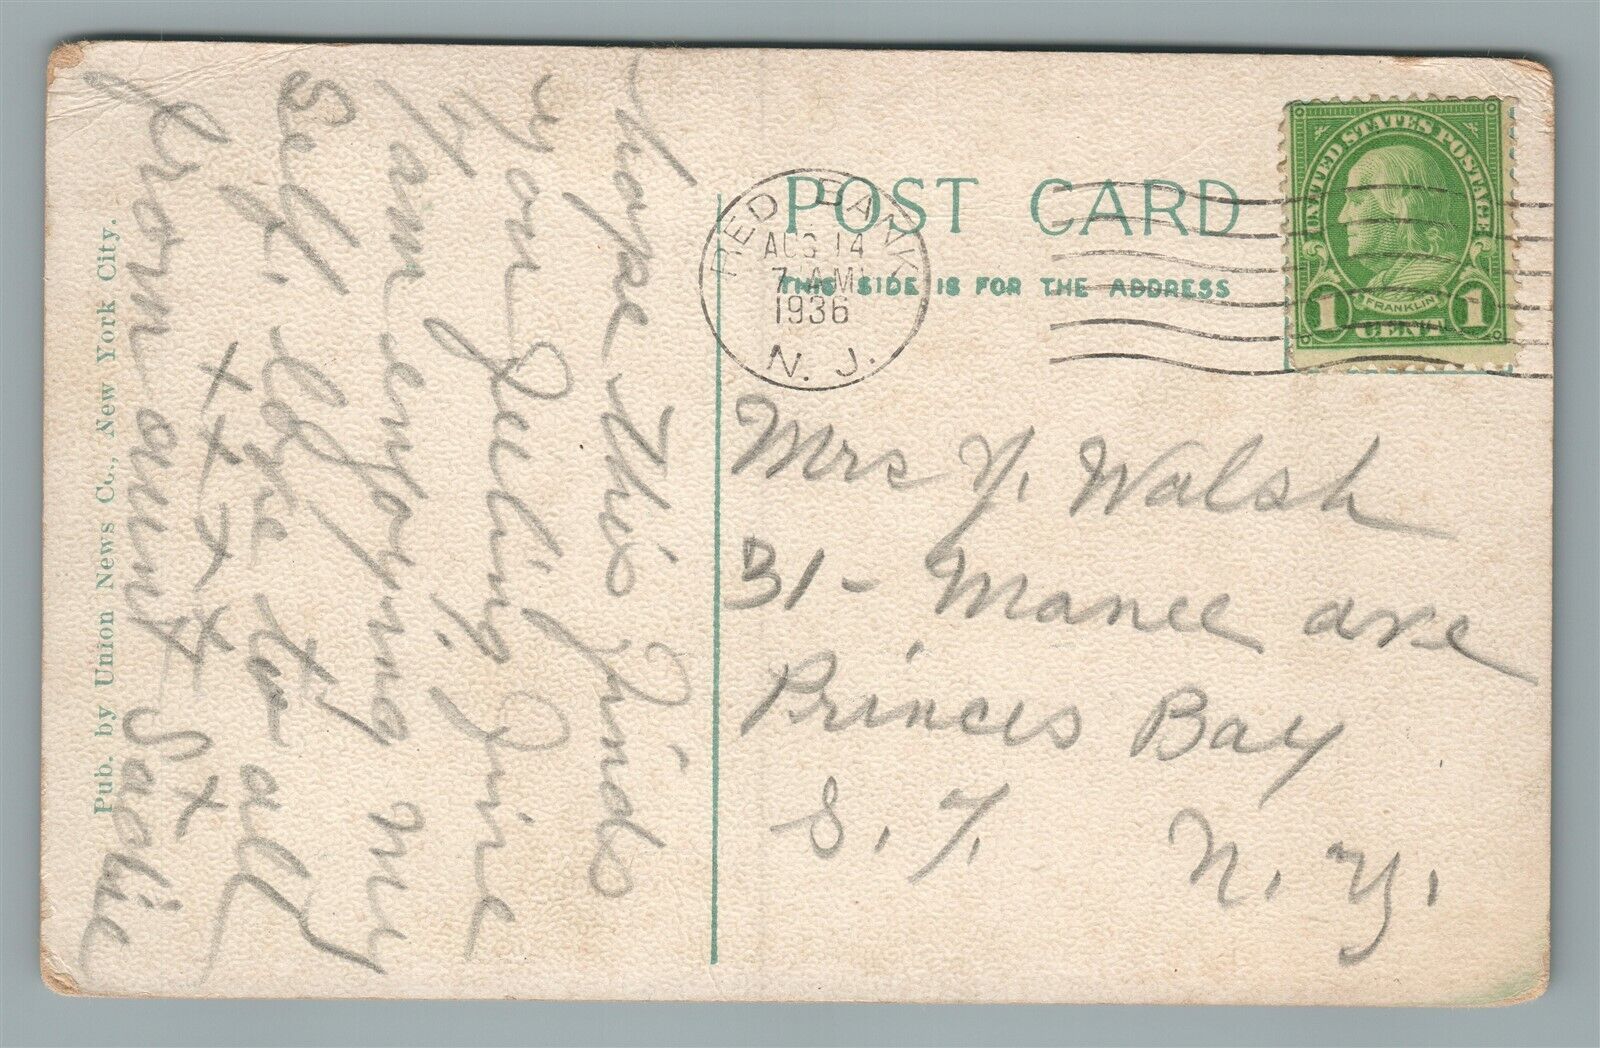 POST CARD
THIS SIDE IS FOR THE ADDRESS
RED BANK
AUG 14
7 AM
1936
N. J.
UNITED STATES POSTAGE
FRANKLIN
1 CENT 1
Mrs Walsh
31- Manee ave
Princes Bay
S. I. N. Y.
hope this finds
you feeling fine
I am enjoying my
Self. love to all
from aunt Sadie
x x x x x x
Pub. by Union News Co., New York City.